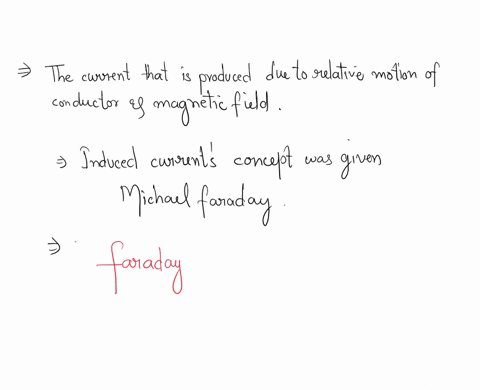 ⇒ The current that is produced due to relative motion of
conductor & magnetic field.
⇒ Induced current's concept was given
Michael faraday.
⇒
faraday